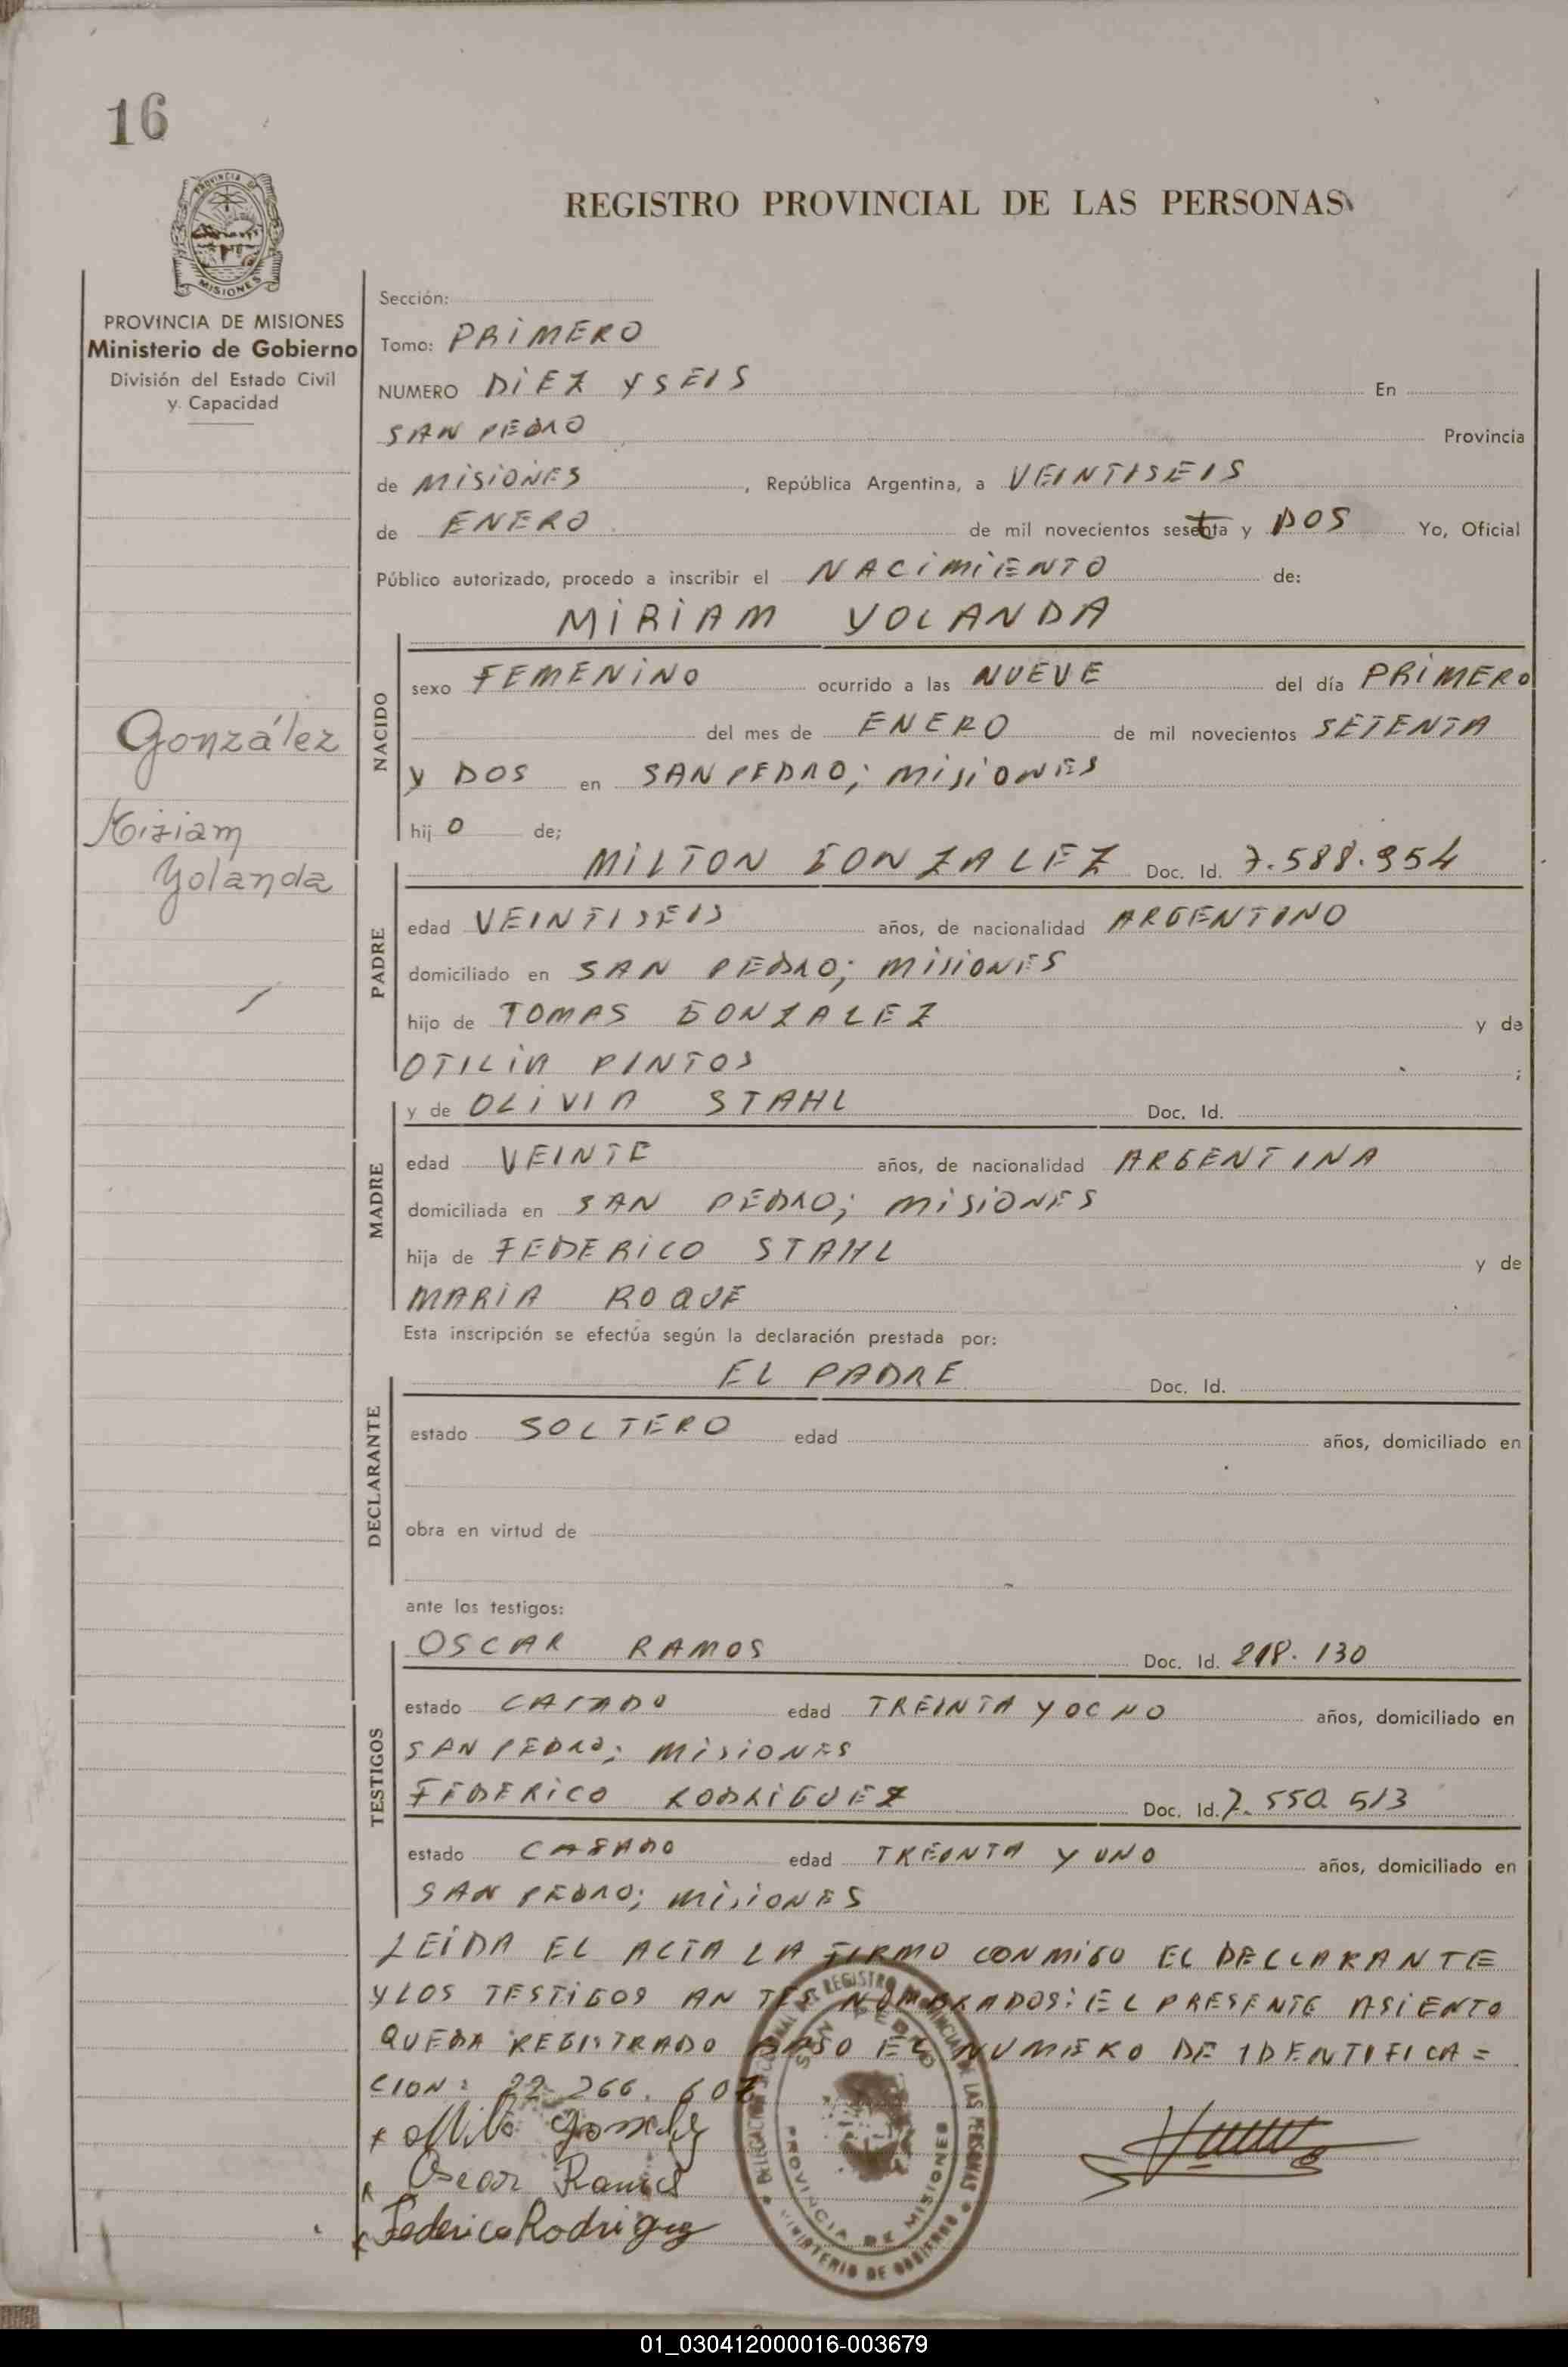 16
PROVINCIA DE
MISIONES
REGISTRO PROVINCIAL DE LAS PERSONAS
PROVINCIA DE MISIONES
Ministerio de Gobierno
División del Estado Civil
y. Capacidad
González
Miriam
Yolanda
Sección:
Tomo: PRIMERO
NUMERO DIEZ Y SEIS En
SAN PEDRO Provincia
de MISIONES, República Argentina, a VEINTISEIS
de ENERO de mil novecientos setenta y DOS Yo, Oficial
Público autorizado, procedo a inscribir el NACIMIENTO de:
MIRIAM YOLANDA
NACIDO
sexo FEMENINO ocurrido a las NUEVE del día PRIMERO
del mes de ENERO de mil novecientos SETENTA
y DOS en SAN PEDRO; MISIONES
hij O de;
MILTON GONZALEZ Doc. Id. 7.588.954
PADRE
edad VEINTISEIS años, de nacionalidad ARGENTINO
domiciliado en SAN PEDRO; MISIONES
hijo de TOMAS GONZALEZ y de
OTILIA PINTOS ;
y de OLIVIA STAHL Doc. Id.
MADRE
edad VEINTE años, de nacionalidad ARGENTINA
domiciliada en SAN PEDRO; MISIONES
hija de FEDERICO STAHL y de
MARIA ROQUE
Esta inscripción se efectúa según la declaración prestada por:
EL PADRE Doc. Id.
DECLARANTE
estado SOLTERO edad años, domiciliado en
obra en virtud de
ante los testigos:
OSCAR RAMOS Doc. Id. 218.130
TESTIGOS
estado CASADO edad TREINTA Y OCHO años, domiciliado en
SAN PEDRO; MISIONES
FEDERICO RODRIGUEZ Doc. Id. 7.550.513
estado CASADO edad TREINTA Y UNO años, domiciliado en
SAN PEDRO; MISIONES
LEIDA EL ACTA LA FIRMO CONMIGO EL DECLARANTE
Y LOS TESTIGOS ANTES NOMBRADOS: EL PRESENTE ASIENTO
QUEDA REGISTRADO BAJO EL NUMERO DE IDENTIFICA=
CION: 22.266.607
Milto Gonzalez
Oscar Ramos
Federico Rodriguez
DELEGACION SECCIONAL DEL REGISTRO PROVINCIAL DE LAS PERSONAS
SAN PEDRO
PROVINCIA DE MISIONES
MINISTERIO DE GOBIERNO
01_030412000016-003679